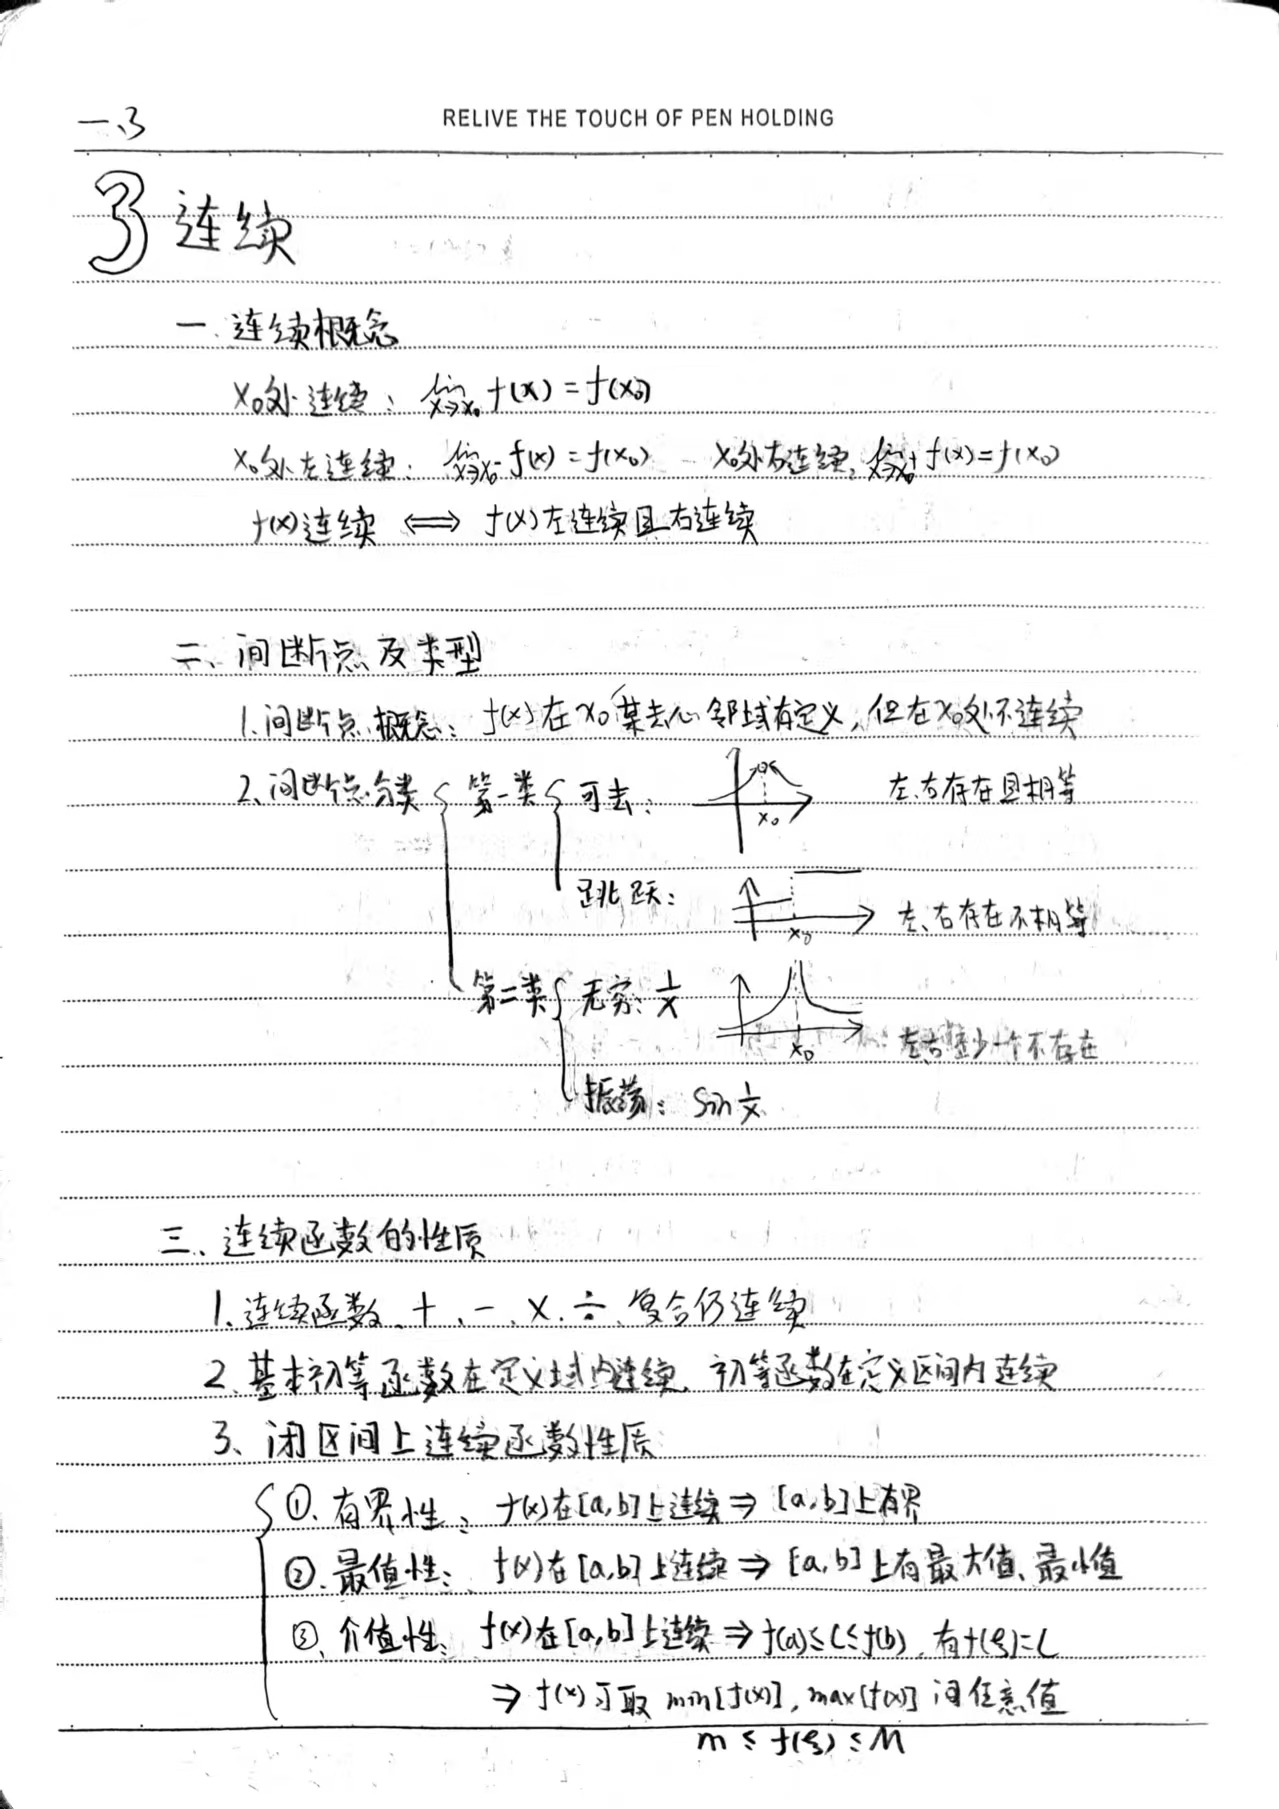 一.3
RELIVE THE TOUCH OF PEN HOLDING
3 连续
一. 连续概念
x₀处连续: lim x→x₀ f(x) = f(x₀)
x₀处左连续: lim x→x₀⁻ f(x) = f(x₀) x₀处右连续: lim x→x₀⁺ f(x) = f(x₀)
f(x)连续 ⟺ f(x)左连续且右连续
二、间断点及类型
1.间断点概念: f(x)在x₀某去心邻域有定义,但在x₀处不连续
2、间断点分类 { 第一类 { 可去: x₀ 左、右存在且相等
跳跃: x₀ 左、右存在不相等
第二类 { 无穷: 1/x x₀ 左右至少一个不存在
振荡: Sin 1/x
三、连续函数的性质
1、连续函数、+、-、×、÷、复合仍连续
2、基本初等函数在定义域内连续,初等函数在定义区间内连续
3、闭区间上连续函数性质
{ ①、有界性: f(x)在[a,b]上连续 ⇒ [a,b]上有界
②、最值性: f(x)在[a,b]上连续 ⇒ [a,b]上有最大值、最小值
③、介值性: f(x)在[a,b]上连续 ⇒ f(a)≤C≤f(b),有f(ξ)=C
⇒ f(x)可取 min[f(x)], max[f(x)] 间任意值
m ≤ f(ξ) ≤ M